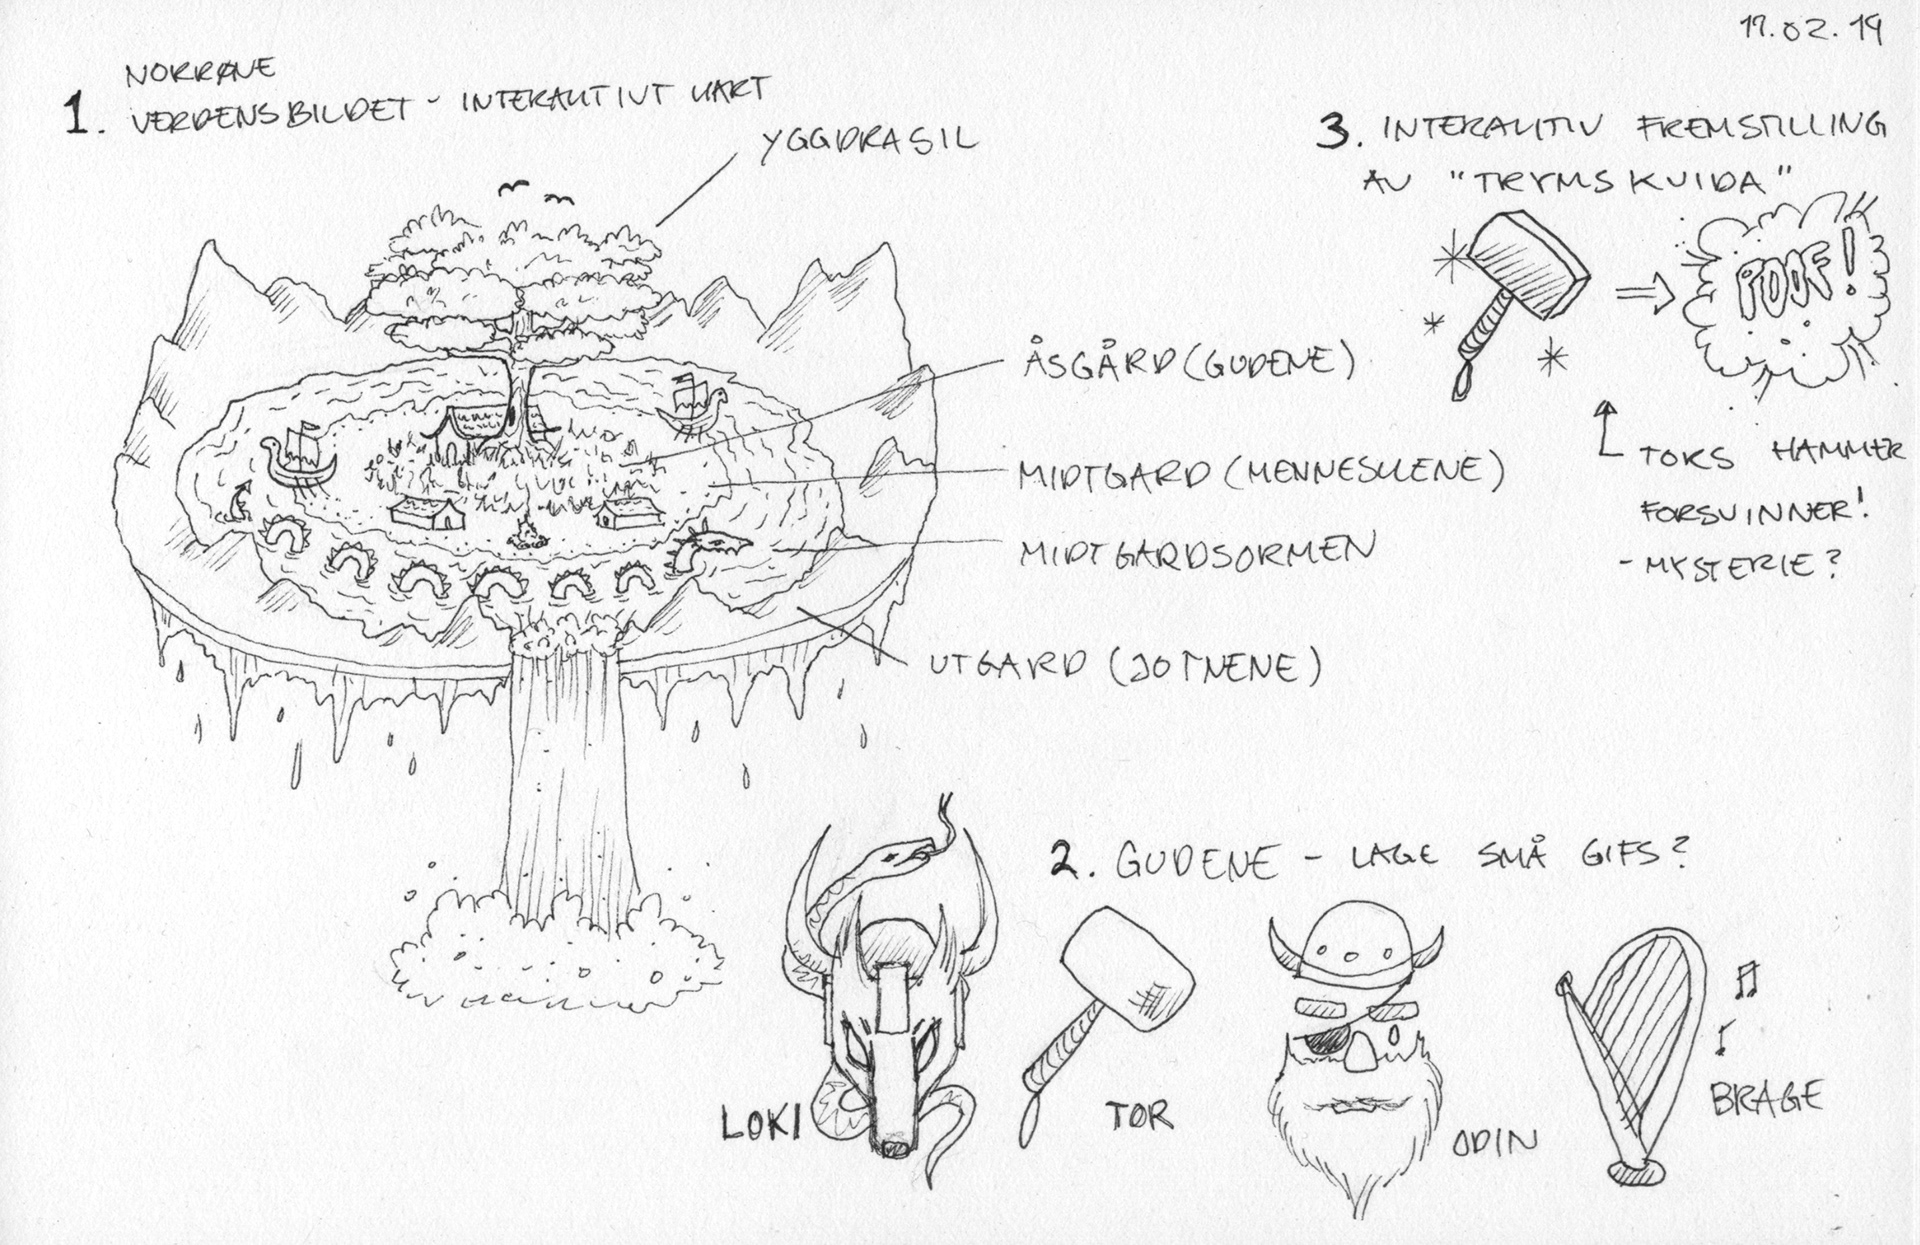 17.02.14
1. NORRØNE
VERDENSBILDET - INTERAKTIVT KART
YGGDRASIL
ÅSGÅRD (GUDENE)
MIDTGARD (MENNESKENE)
MIDTGARDSORMEN
UTGARD (JOTNENE)
3. INTERAKTIV FREMSTILLING
AV "TRYMSKVIDA"
POOF!
TORS HAMMER
FORSVINNER!
- MYSTERIE?
2. GUDENE - LAGE SMÅ GIFS?
LOKI
TOR
ODIN
BRAGE